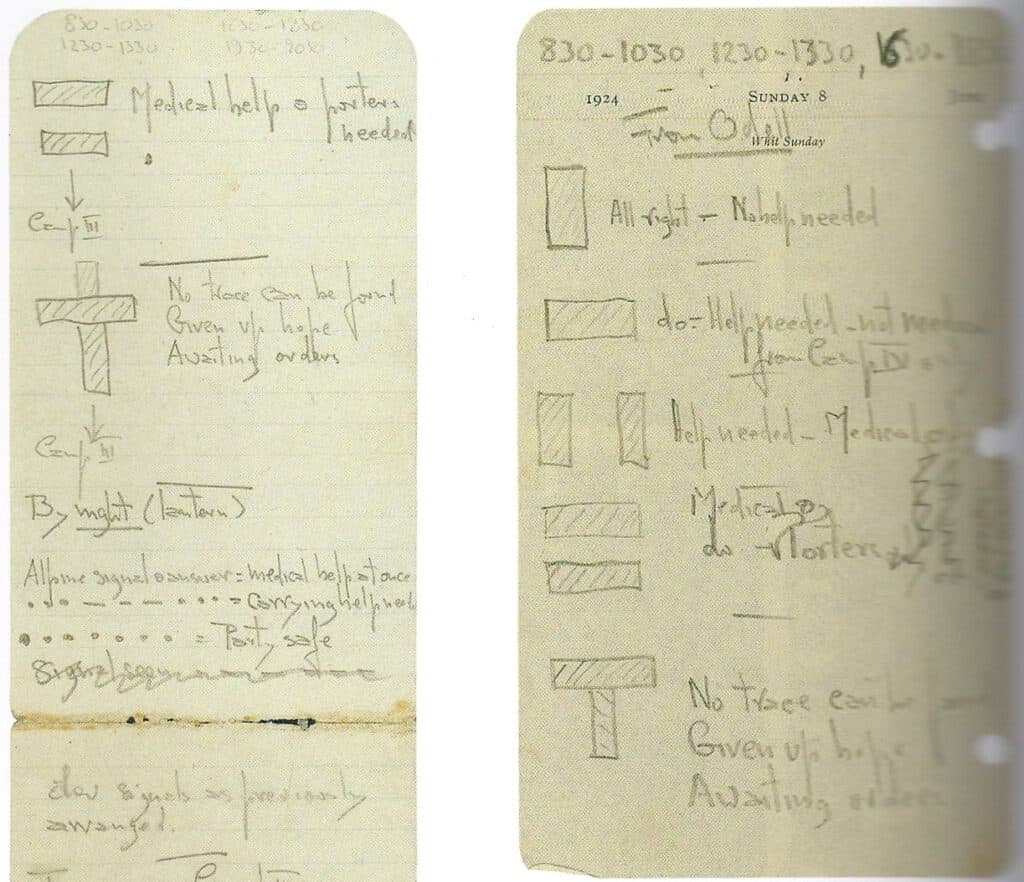 830-1030 1230-1830
1230-1330 1930-2010
Medical help & porters
needed
Camp III
No trace can be found
Given up hope
Awaiting orders
Camp III
By night (lantern)
Alpine signal & answer = medical help at once
• • • — — — • • • = Carrying help need
• • • • • • • • = Party safe
Signal
signals as previously
arranged.
830-1030, 1230-1330,
1924 SUNDAY 8
From Odell
Whit Sunday
All right - No help needed
do - Help needed - not
from Camp IV
Help needed - Medical
Medical
do - Porters
No trace can be
Given up hope
Awaiting orders